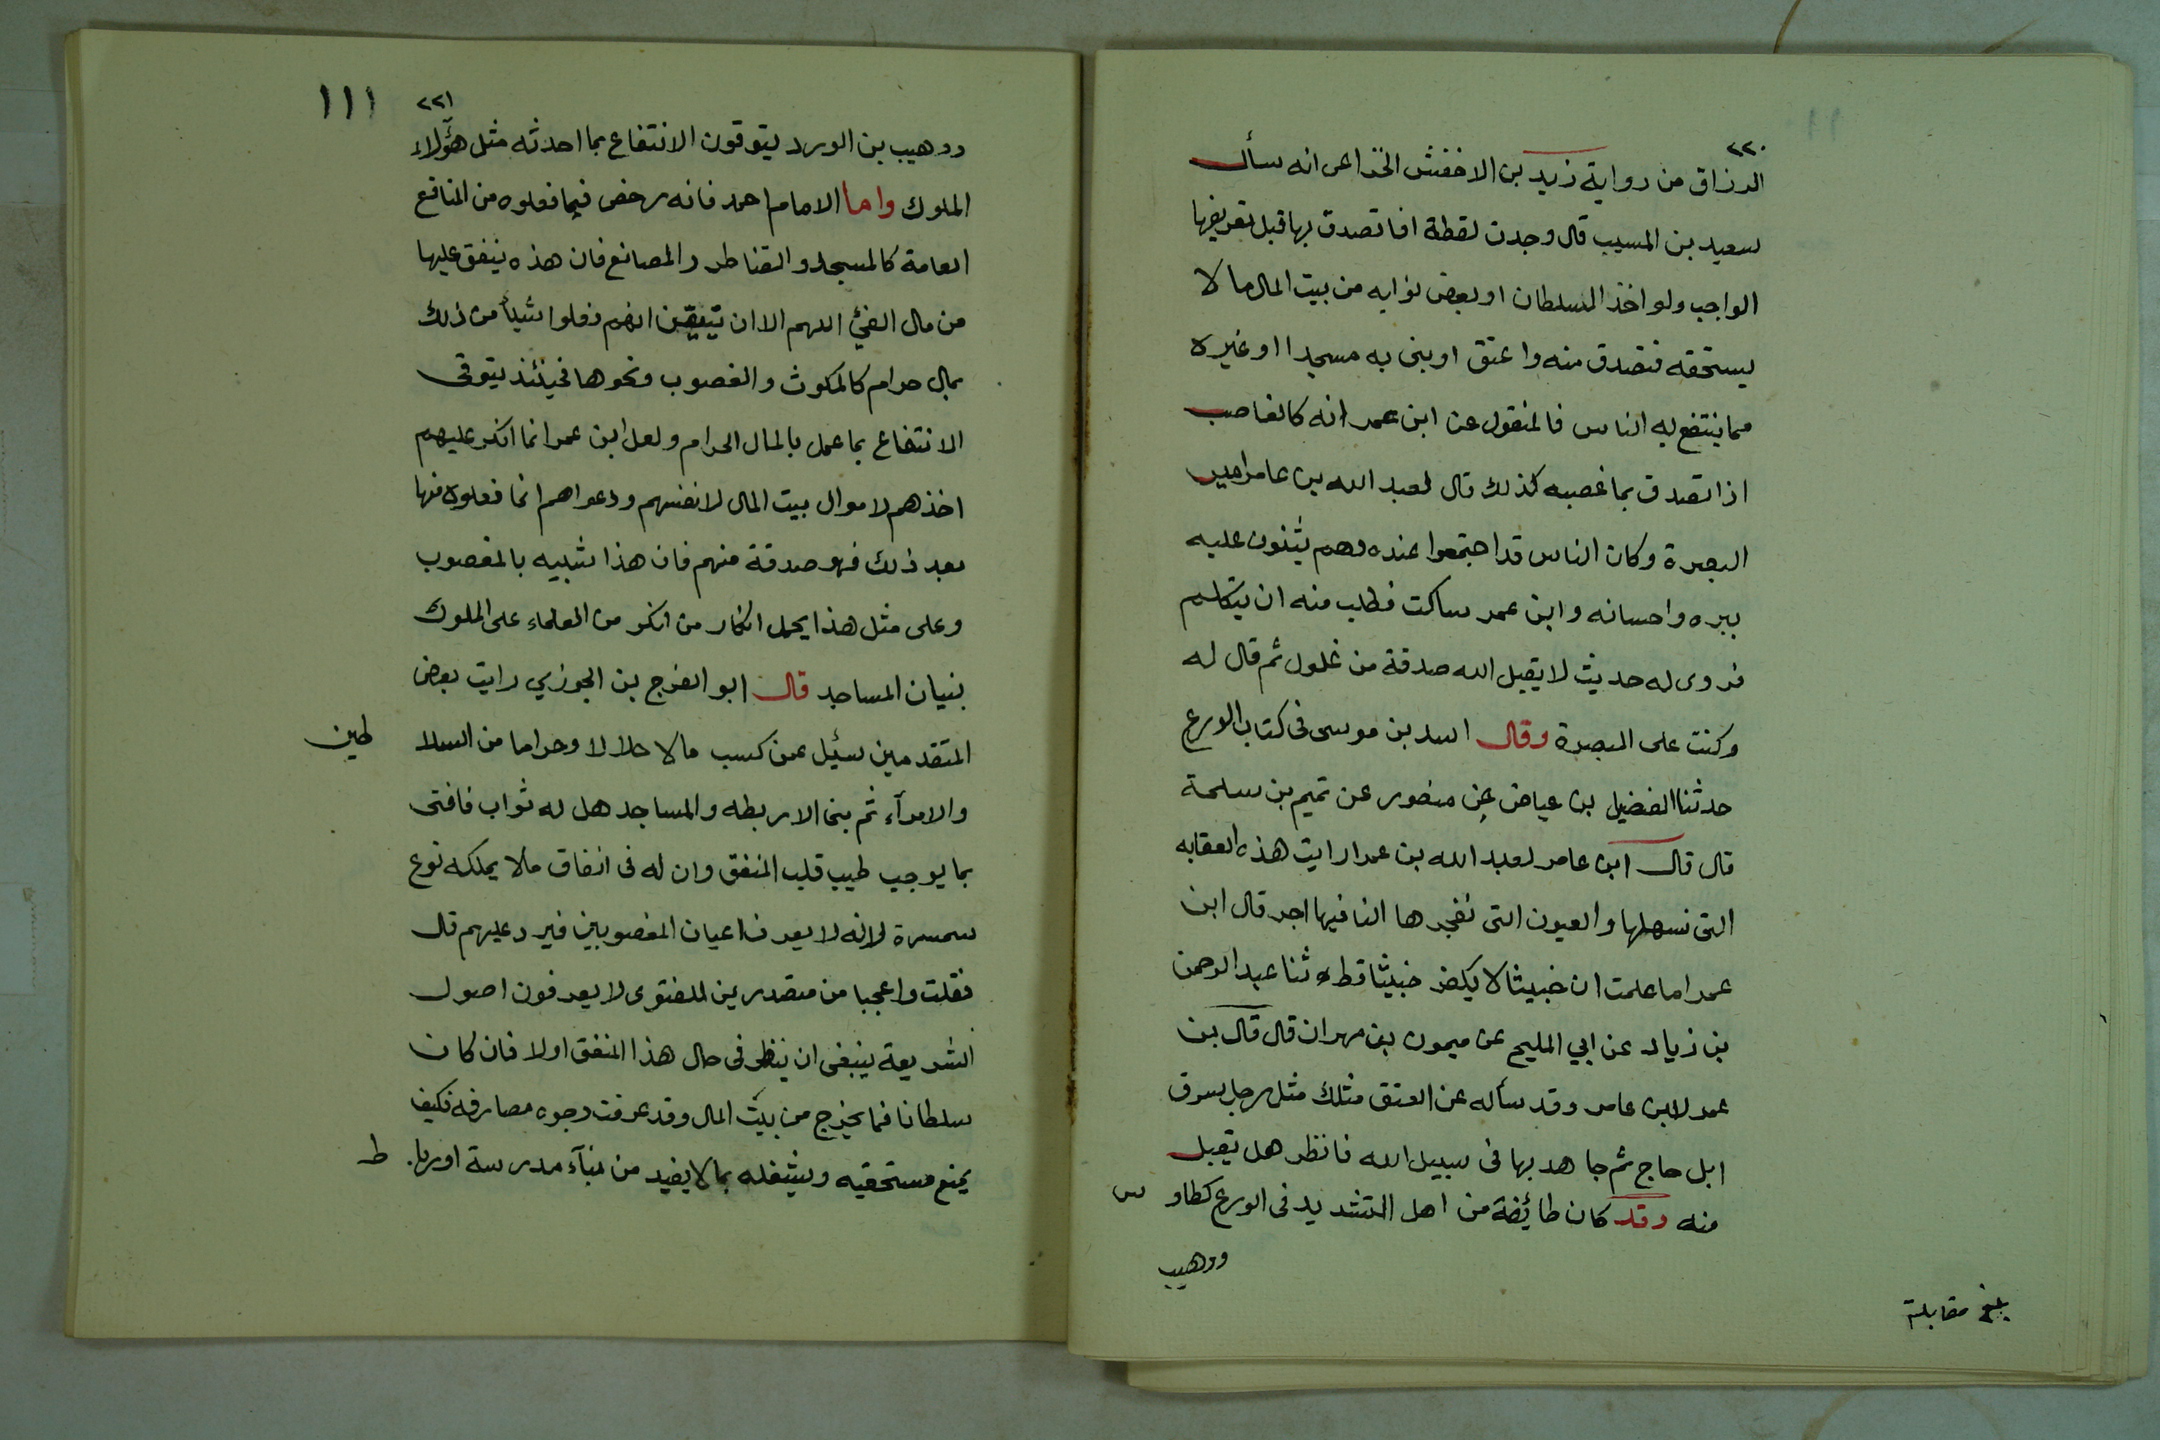 ٢٢٠
الرزاق من رواية زيد بن الاخفش الخزاعى انه سأل
سعيد بن المسيب قال وجدت لقطة افاتصدق بها قبل تعريفها
الواجب ولو اخذ السلطان او بعض نوابه من بيت المال ما لا
يستحقه فتصدق منه واعتق او بنى به مسجدا او غيره
مما ينتفع به الناس فالمنقول عن ابن عمر انه كالغاصب
اذا تصدق بما غصبه كذلك قال لعبد الله بن عامر امير
البصرة وكان الناس قد اجتمعوا عنده وهم يثنون عليه
ببره واحسانه وابن عمر ساكت فطلب منه ان يتكلم
فروى له حديث لا يقبل الله صدقة من غلول ثم قال له
وكنت على البصرة وقال اسد بن موسى فى كتاب الورع
حدثنا الفضيل بن عياض عن منصور عن تميم بن سلمة
قال قال ابن عامر لعبد الله بن عمر ارايت هذه العقابه
التى نسهلها والعيون التى نفجرها النا فيها اجر قال ابن
عمر اما علمت ان خبيثا لا يكفر خبيثا قط ثنا عبد الرحمن
بن زياد عن ابي المليح عن ميمون بن مهران قال قال بن
عمر لابن عامر وقد سأله عن العتق مثلك مثل رجل سرق
ابل حاج ثم جاهد بها فى سبيل الله فانظر هل يقبل
منه وقد كان طائفة من اهل التشديد فى الورع كطاو س
ووهيب
بلغ مقابلة
٢٢١
١١١
ووهيب بن الورد يتوقون الانتفاع بما احدثه مثل هؤلاء
الملوك واما الامام احمد فانه رخص فيما فعلوه من المنافع
العامة كالمسجد والقناطر والمصانع فان هذه ينفق عليها
من مال الفئ اللهم الا ان يتيقن انهم فعلوا شيأ من ذلك
بمال حرام كالمكوث والغصوب ونحوها فحينئذ يتوقى
الانتفاع بما عمل بالمال الحرام ولعل ابن عمر انما انكر عليهم
اخذهم لاموال بيت المال لانفسهم ودعواهم انما فعلوه منها
بعد ذلك فهو صدقة منهم فان هذا شبيه بالمغصوب
وعلى مثل هذا يحمل انكار من انكر من العلماء على الملوك
بنيان المساجد قال ابو الفرج بن الجوزي رايت بعض
المتقدمين سئيل عمن كسب مالا حلالا وحراما من السلا طين
والامرآء ثم بنى الاربطه والمساجد هل له ثواب فافتى
بما يوجب طيب قلب المنفق وان له فى انفاق مالا يملكه نوع
سمسرة لانه لا يعرف اعيان المغصوبين فيرد عليهم قال
فقلت واعجبا من متصدرين للفتوى لا يعرفون اصول
الشريعة ينبغى ان ينظر فى حال هذا المنفق اولا فان كان
سلطانا فما يخرج من بيت المال وقد عرفت وجوه مصارفه فكيف
يمنع مستحقيه ويشغله بما لا يفيد من بنآء مدرسة او ربا ط